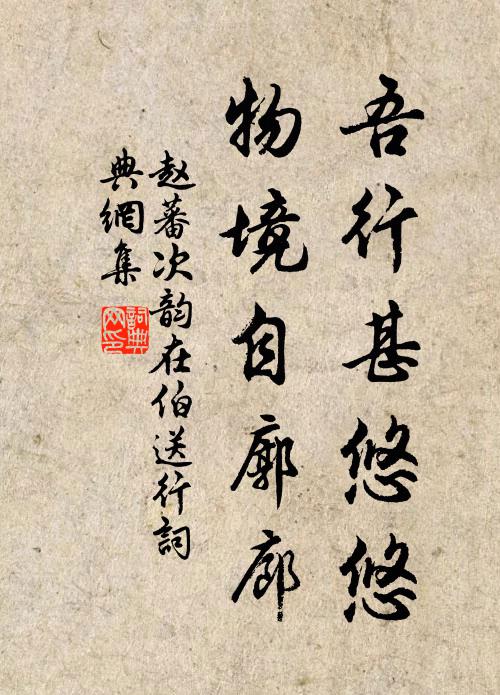 吾行甚悠悠
物境自廓廓
赵蕃次韵在伯送行词
典網集
詞典网印